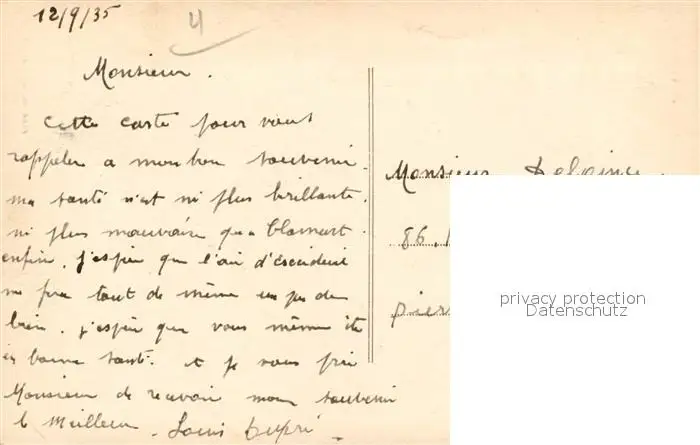 12/9/35
4
Monsieur.
Cette carte pour vous
rappeler a mon bon souvenir.
ma santé n'est ni plus brillante.
ni plus mauvaise qu'a Clamart.
enfin. j'espère que l'air d'
me fera tout de même un peu de
bien. j'espère que vous même ête
en bonne santé. et je vous prie
Monsieur de recevoir mon souvenir
le meilleur. Louis Dupré
Monsieur
86.
pier
privacy protection
Datenschutz